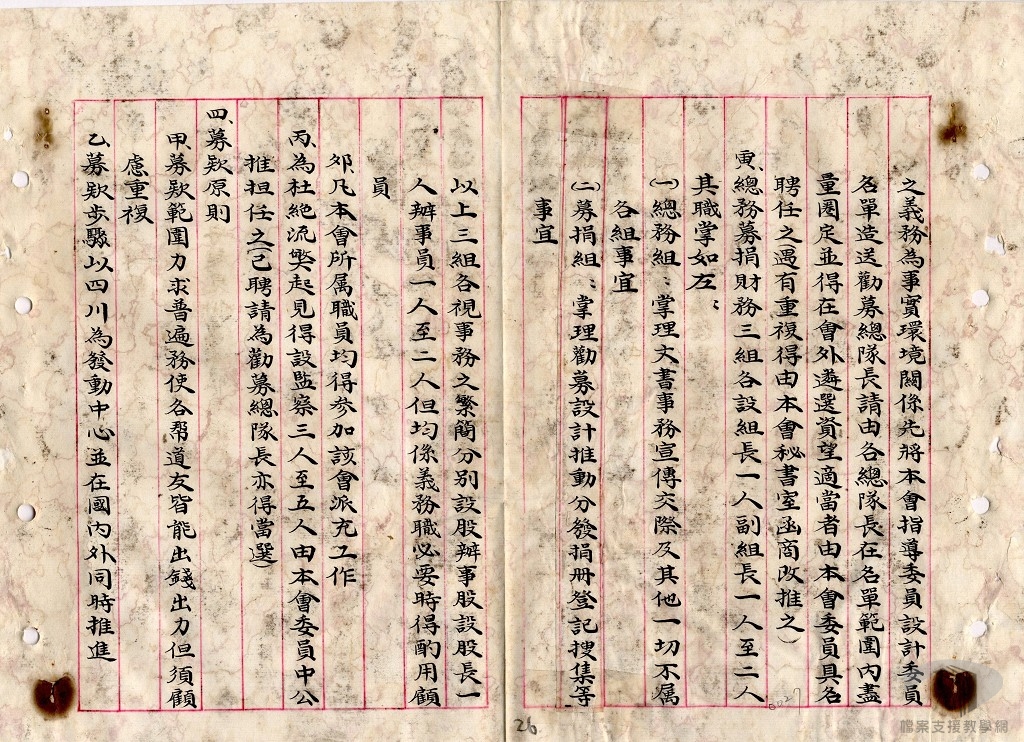 之義務為事實環境關係先將本會指導委員設計委員
名單造送勸募總隊長請由各總隊長在名單範圍內盡
量圈定並得在會外遴選資望適當者由本會委員具名
聘任之遇有重複得由本會秘書室函商改推之）
寅、總務募捐財務三組各設組長一人副組長一人至二人
其職掌如左：
㈠總務組：掌理文書事務宣傳交際及其他一切不屬
各組事宜
㈡募捐組：掌理勸募設計推動分發捐冊登記搜集等
事宜
以上三組各視事務之繁簡分別設股辦事股設股長一
人辦事員一人至二人但均係義務職必要時得酌用顧
員
卯、凡本會所屬職員均得參加該會派充工作
丙、為杜絕流弊起見得設監察三人至五人由本會委員中公
推担任之（已聘請為勸募總隊長亦得當選）
四、募欵原則
甲、募欵範圍力求普遍務使各幫道友皆能出錢出力但須顧
慮重複
乙、募欵步驟以四川為發動中心並在國內外同時推進
26
0027
檔案支援教學網